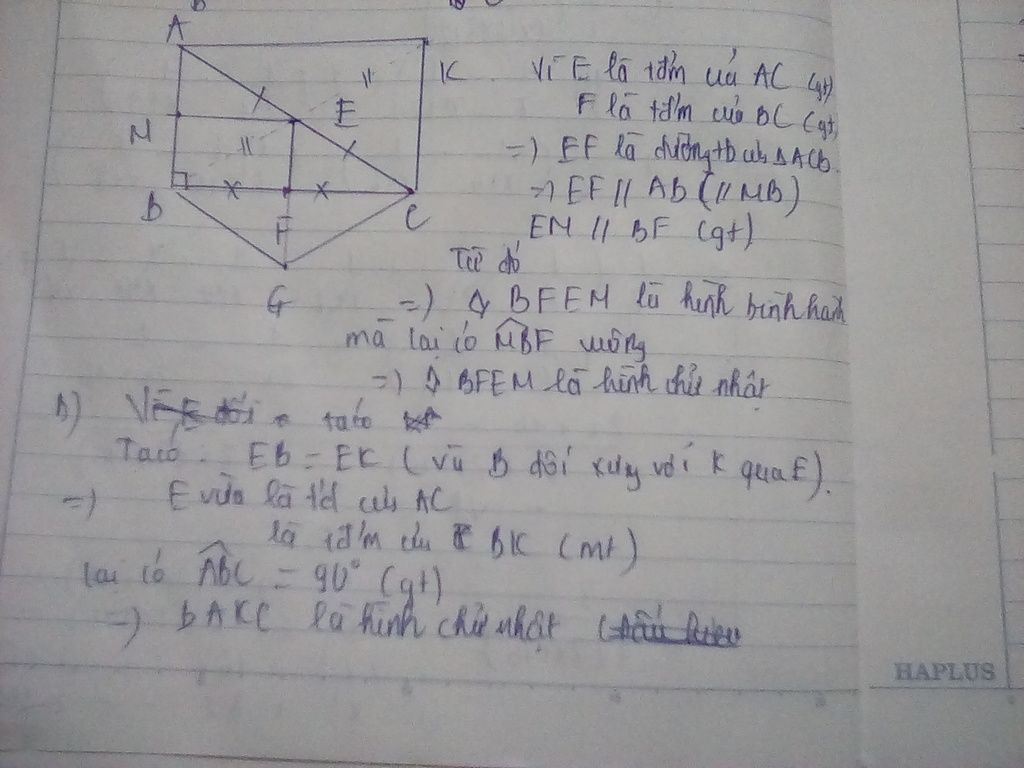 A
K
Vì E là tđ'm của AC (gt)
M
E
F là tđ'm của BC (gt)
=) EF là đường tb của ΔACB.
=) EF // AB (// MB)
B
F
C
EM // BF (gt)
Từ đó
G
=) ◊ BFEM là hình bình hành
mà lại có MBF vuông
=) ◊ BFEM là hình chữ nhật
b)
ta có
Ta có: EB = EK (vì B đối xứng với K qua E).
=) E vừa là tđ của AC
là tđ'm của BK (mt)
lại có ABC = 90° (gt)
=) BAKC là hình chữ nhật
HAPLUS